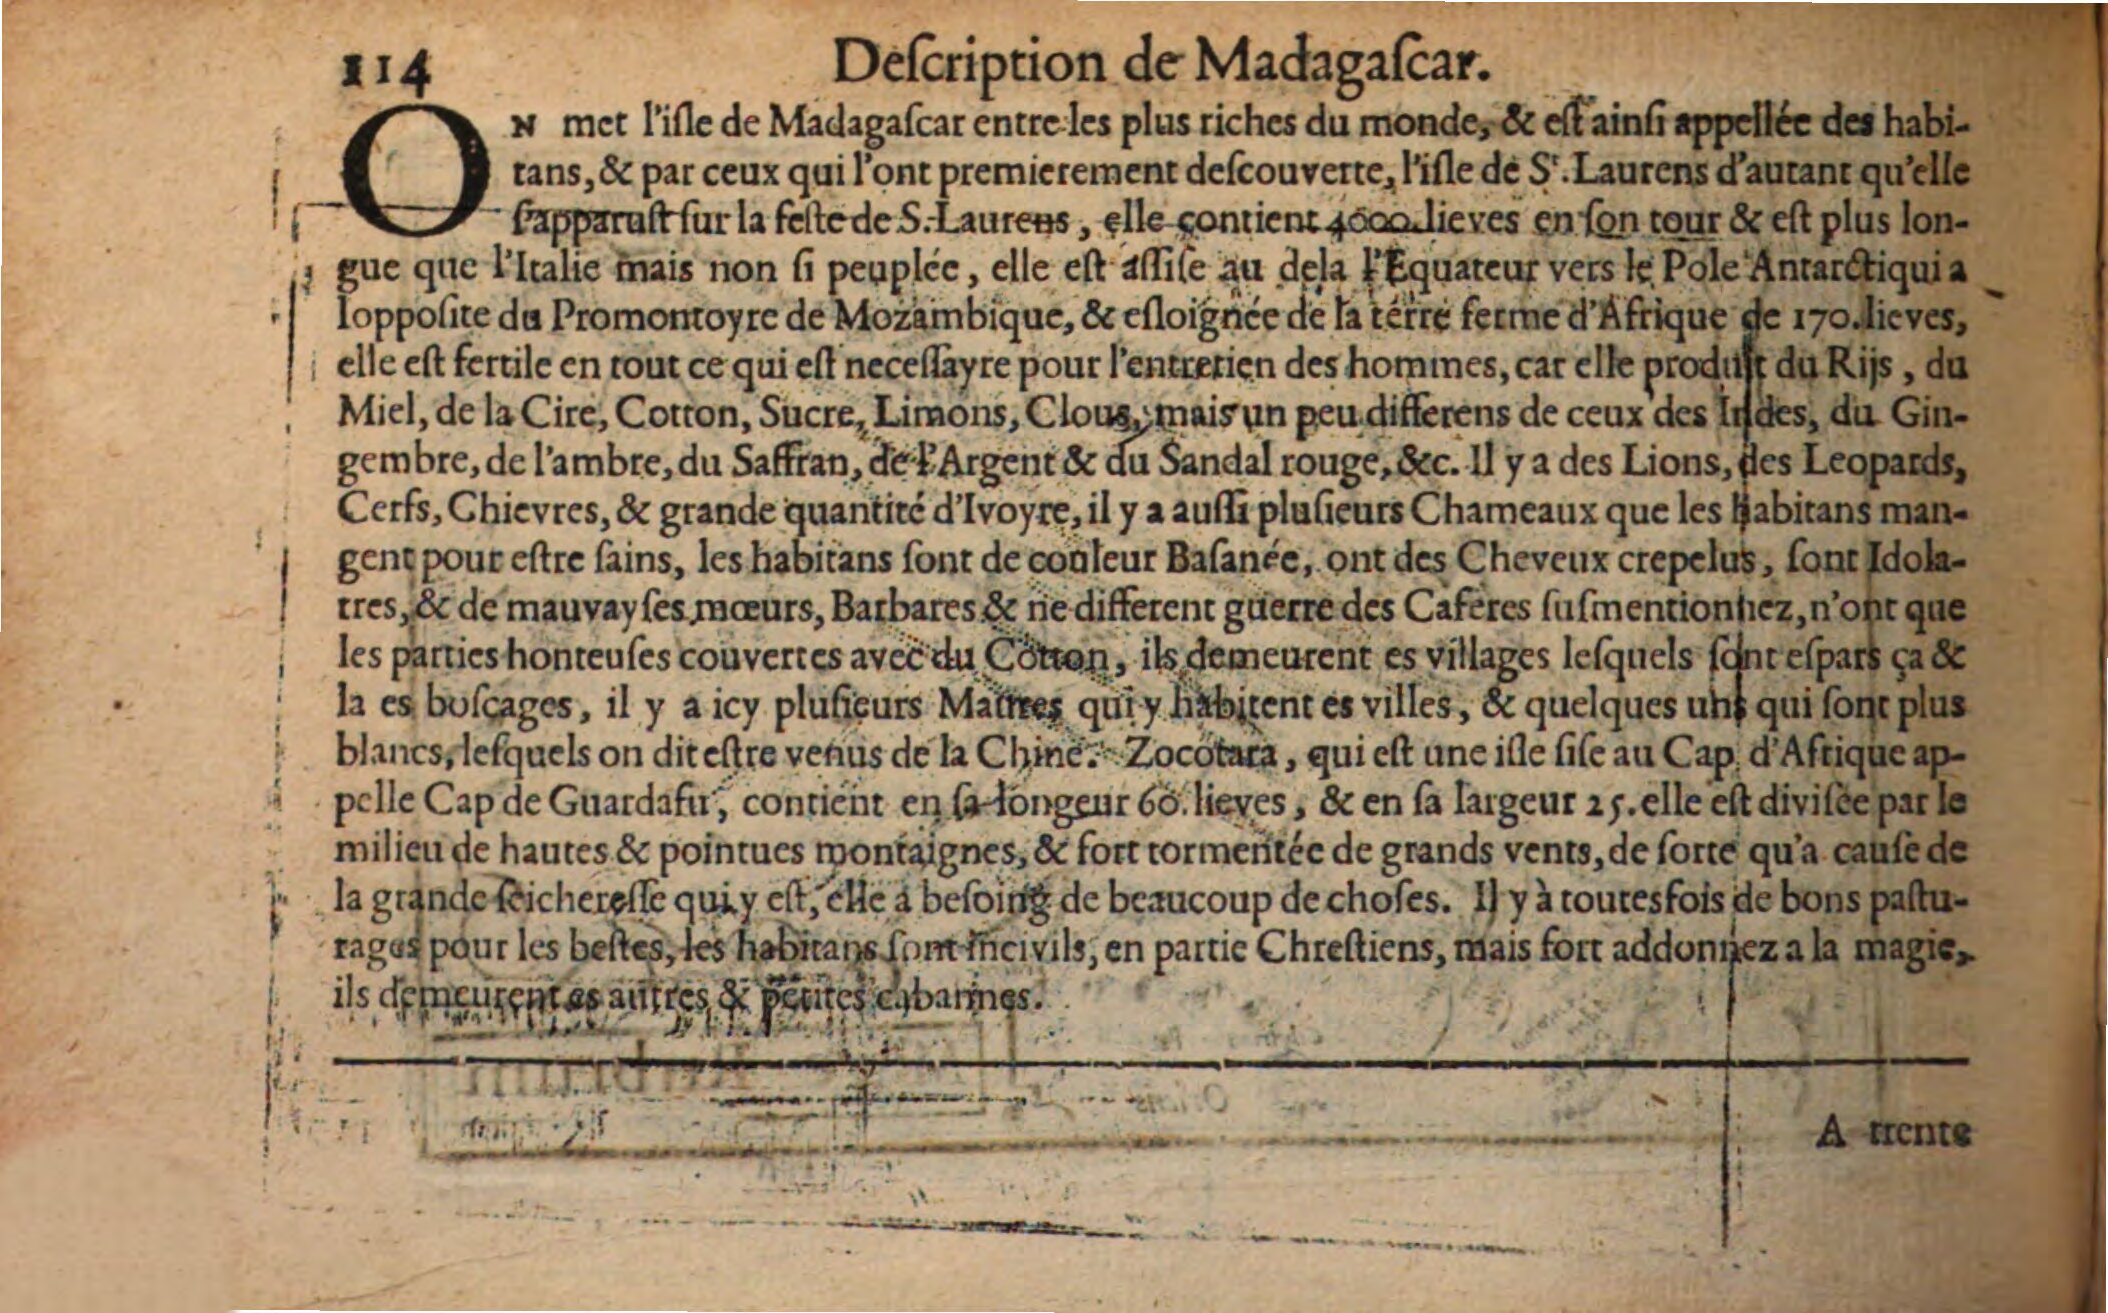 114
Deſcription de Madagaſcar.
ON met l'iſle de Madagaſcar entre les plus riches du monde, & eſt ainſi appellée des habi-
tans, & par ceux qui l'ont premierement deſcouverte, l'iſle de Sᵗ. Laurens d'autant qu'elle
ſ'apparuſt ſur la feſte de S. Laurens, elle contient 4000. lieves en ſon tour & eſt plus lon-
gue que l'Italie mais non ſi peuplée, elle eſt aſſiſe au dela l'Equateur vers le Pole Antarctiqui a
lopposite du Promontoyre de Mozambique, & eſloignée de la terre ferme d'Afrique de 170. lieves,
elle eſt fertile en tout ce qui eſt neceſſayre pour l'entretien des hommes, car elle produit du Rijs, du
Miel, de la Cire, Cotton, Sucre, Limons, Clous, mais un peu differens de ceux des Indes, du Gin-
gembre, de l'ambre, du Saffran, de l'Argent & du Sandal rouge, &c. Il y a des Lions, des Leopards,
Cerfs, Chievres, & grande quantité d'Ivoyre, il y a auſſi pluſieurs Chameaux que les habitans man-
gent pour eſtre ſains, les habitans ſont de couleur Baſanée, ont des Cheveux crepelus, ſont Idola-
tres, & de mauvayſes mœurs, Barbares & ne different guerre des Caferes ſuſmentionnez, n'ont que
les parties honteuſes couvertes avec du Cotton, ils demeurent es villages leſquels ſont eſpars ça &
la es boſcages, il y a icy pluſieurs qui y habitent es villes, & quelques uns qui ſont plus
blancs, leſquels on dit eſtre venus de la Chine. Zocotara, qui eſt une iſle ſiſe au Cap d'Afrique ap-
pelle Cap de Guardafu, contient en ſa longeur 60. lieves, & en ſa largeur 25. elle eſt diviſée par le
milieu de hautes & pointues montaignes, & fort tormentée de grands vents, de ſorte qu'a cauſe de
la grande ſeichereſſe qui y eſt, elle a beſoing de beaucoup de choſes. Il y à toutesfois de bons paſtu-
rages pour les beſtes, les habitans ſont incivils, en partie Chreſtiens, mais fort addonnez a la magie,
ils demeurent es autres & petites cabannes.
A trente